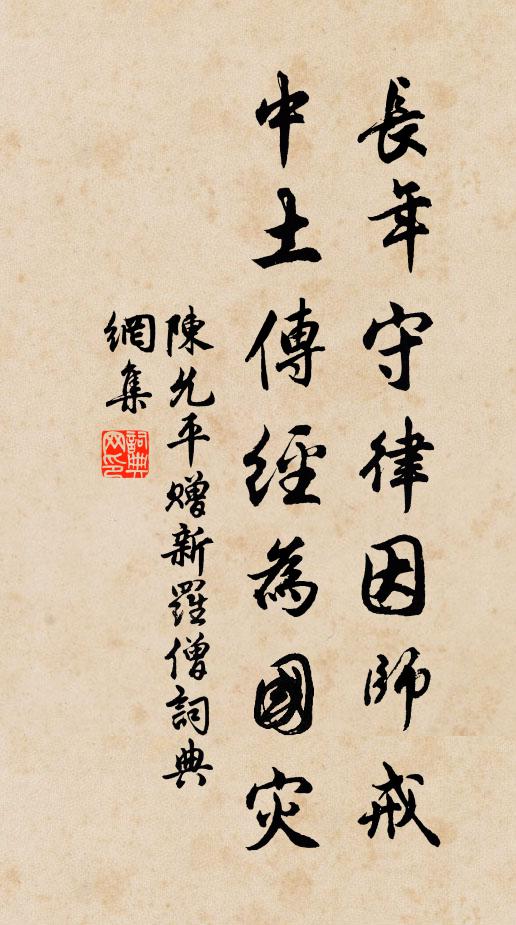 長年守律因師戒
中土傳經為國災
陳允平贈新羅僧詞典
網集
詞典
网印